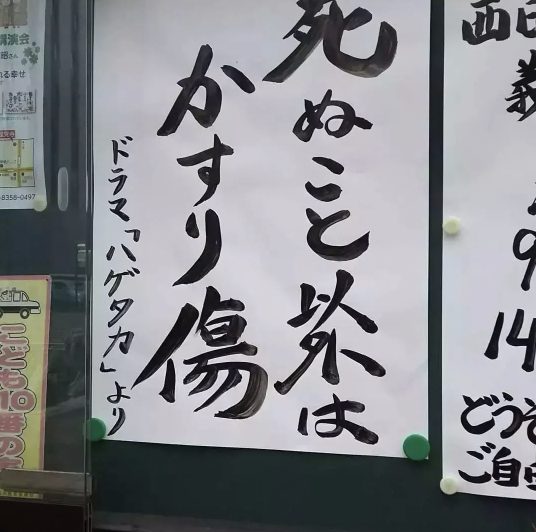 死ぬこと以外は
かすり傷
ドラマ「ハゲタカ」より
西
義
9
14
どうぞ
ご自由
講演会
昭さん
れる幸せ
-8358-0497
こども110番の